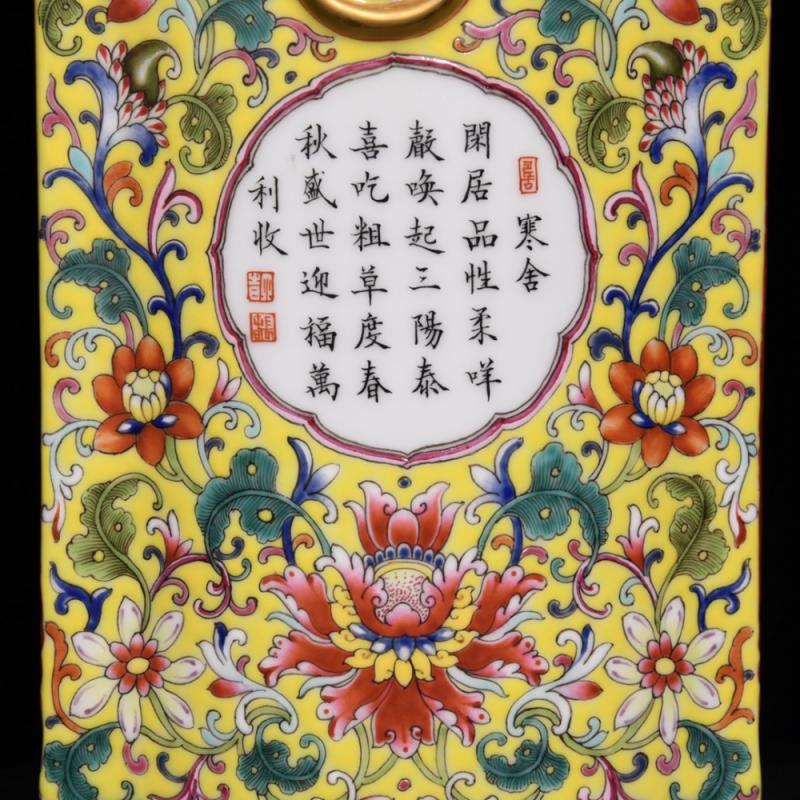 寒舍
閑居品性柔咩
嚴喚起三陽泰
喜吃粗草度春
秋盛世迎福萬
利收